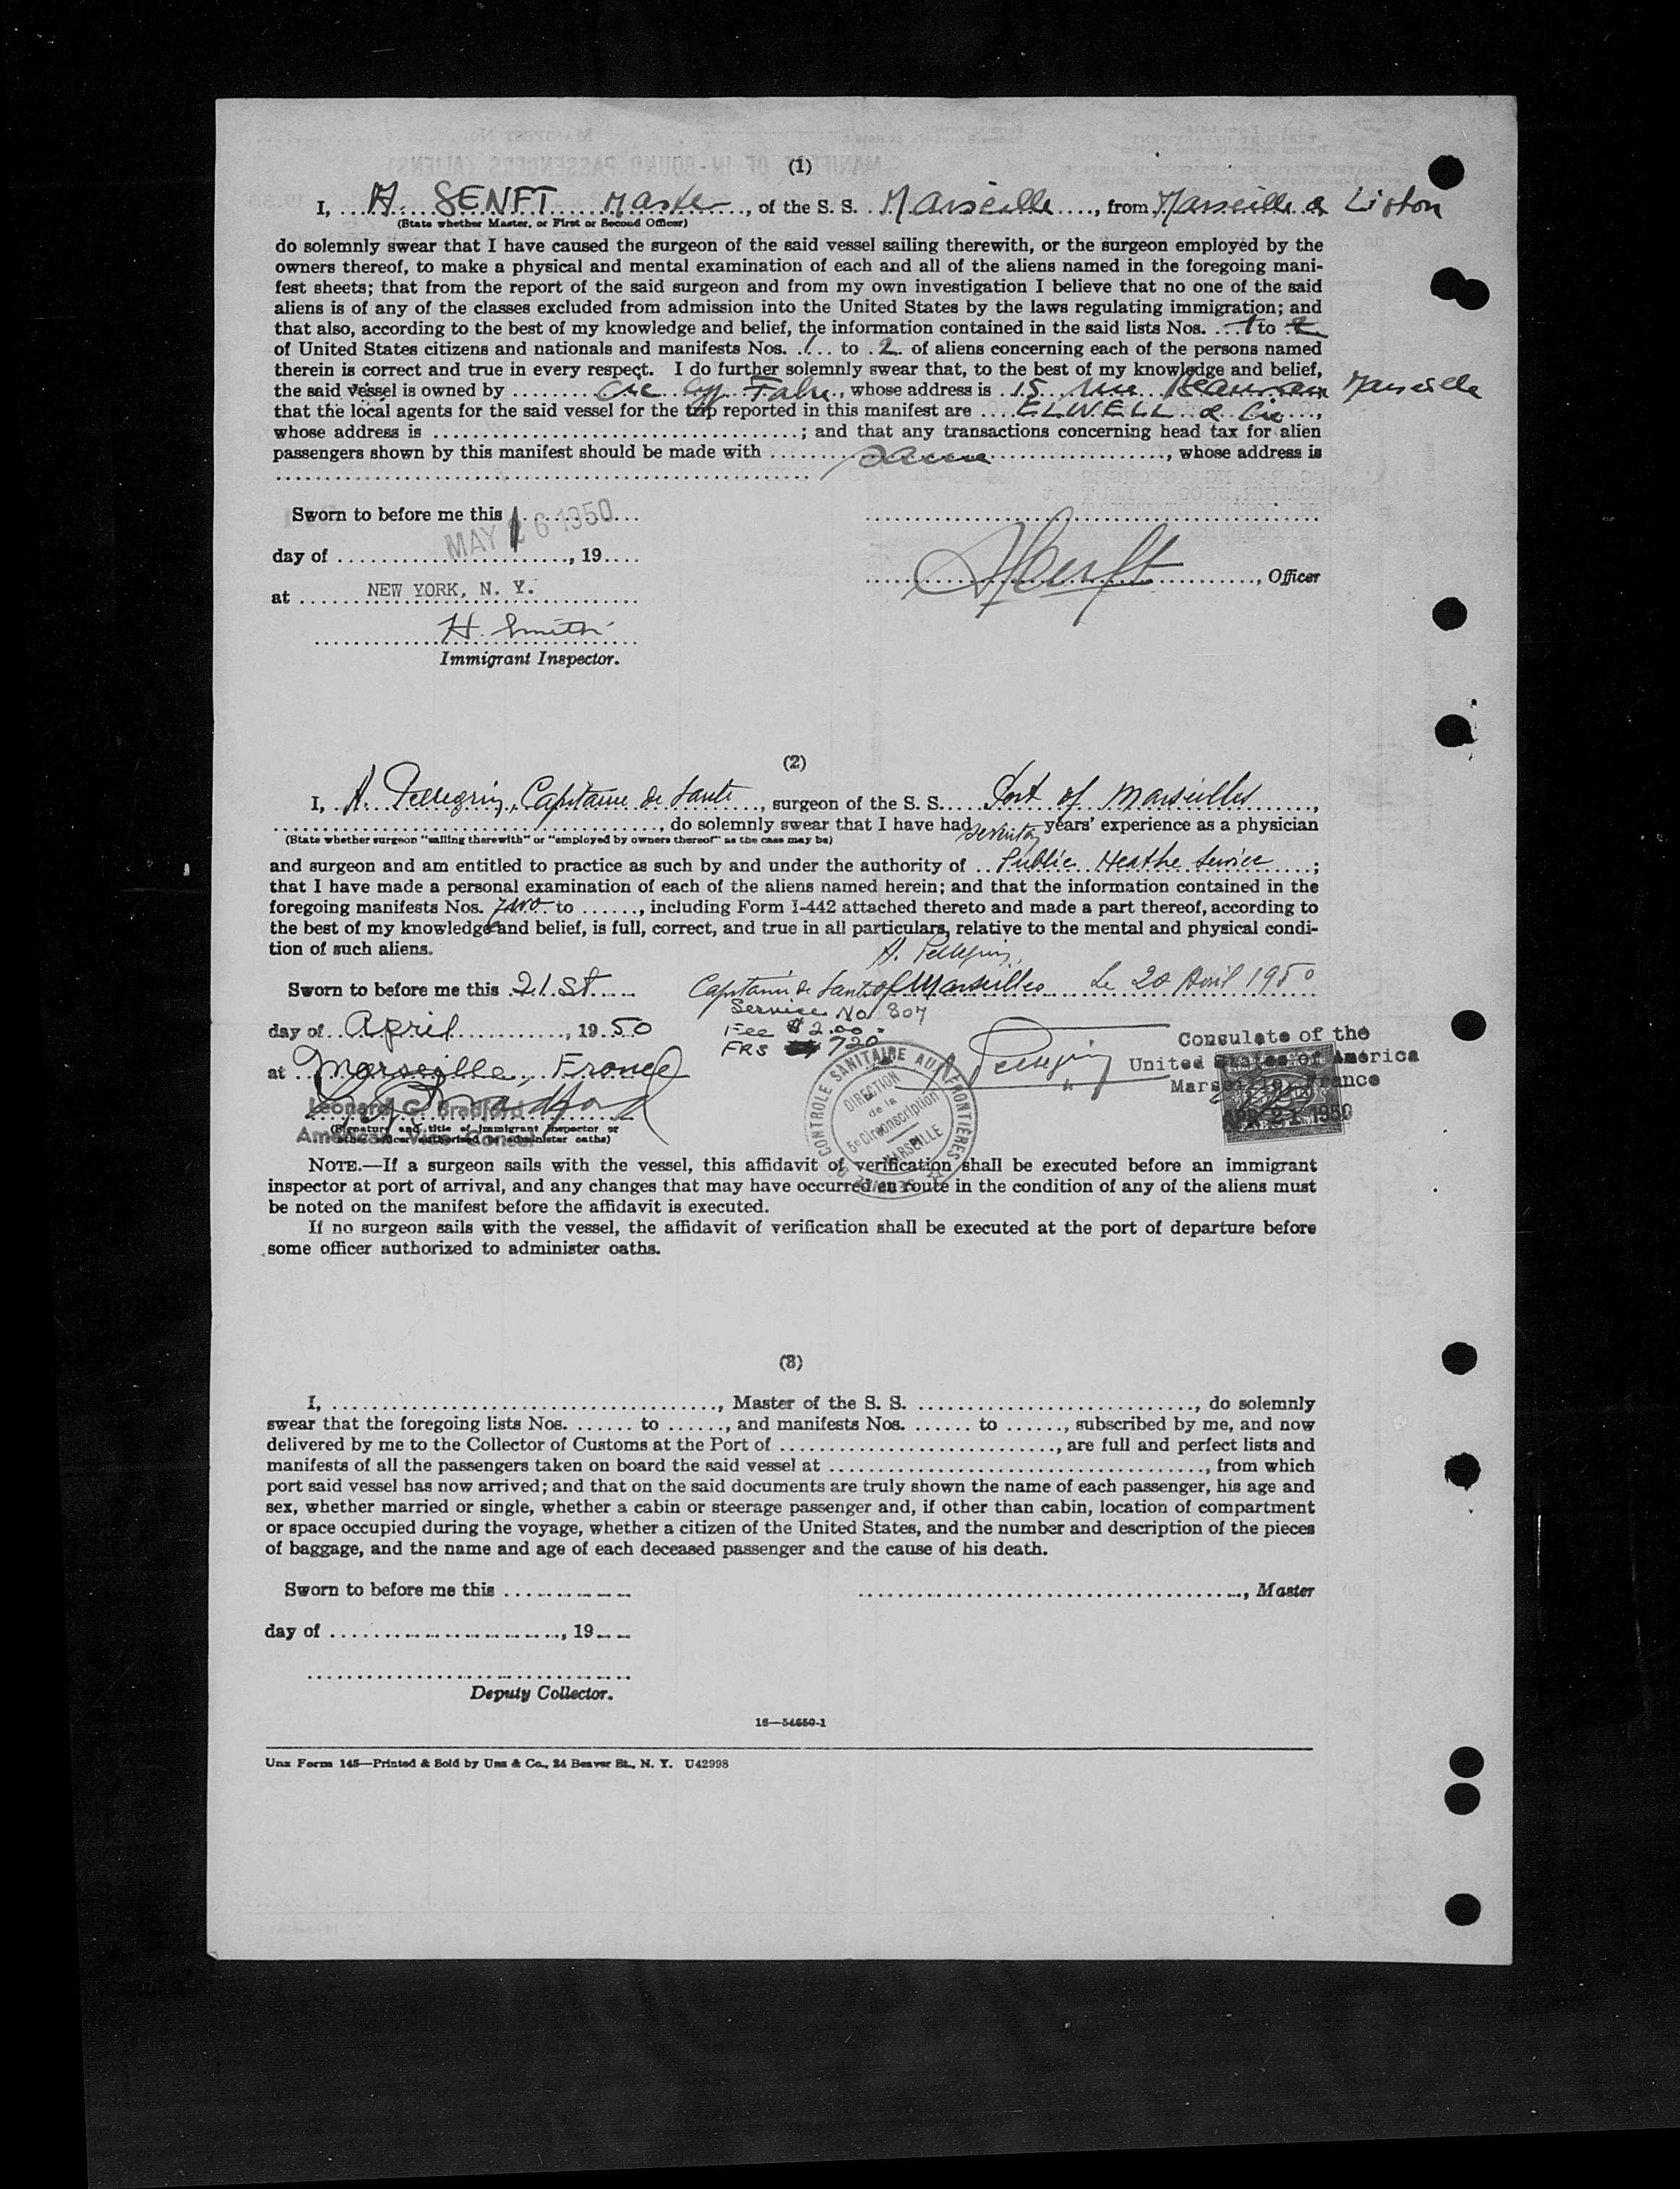 (1)
I, A. SENFT Master, of the S. S. Marseille, from Marseille & Lisbon
(State whether Master, or First or Second Officer)
do solemnly swear that I have caused the surgeon of the said vessel sailing therewith, or the surgeon employed by the
owners thereof, to make a physical and mental examination of each and all of the aliens named in the foregoing mani-
fest sheets; that from the report of the said surgeon and from my own investigation I believe that no one of the said
aliens is of any of the classes excluded from admission into the United States by the laws regulating immigration; and
that also, according to the best of my knowledge and belief, the information contained in the said lists Nos. 1 to 2
of United States citizens and nationals and manifests Nos. 1 to 2 of aliens concerning each of the persons named
therein is correct and true in every respect. I do further solemnly swear that, to the best of my knowledge and belief,
the said vessel is owned by Cie Fabre, whose address is 15 rue Beauvau Marseille
that the local agents for the said vessel for the trip reported in this manifest are ELWELL & Cie,
whose address is ; and that any transactions concerning head tax for alien
passengers shown by this manifest should be made with same, whose address is
Sworn to before me this
MAY 6 1950
day of , 19
A Senft, Officer
at NEW YORK, N. Y.
H. Smith
Immigrant Inspector.
(2)
I, A. Pellegrin, Capitaine de Santé, surgeon of the S. S. Port of Marseilles,
, do solemnly swear that I have had years' experience as a physician
(State whether surgeon "sailing therewith" or "employed by owners thereof" as the case may be)
and surgeon and am entitled to practice as such by and under the authority of Public Heathe Service;
that I have made a personal examination of each of the aliens named herein; and that the information contained in the
foregoing manifests Nos. two to , including Form I-442 attached thereto and made a part thereof, according to
the best of my knowledge and belief, is full, correct, and true in all particulars, relative to the mental and physical condi-
tion of such aliens.
A. Pellegrin,
Sworn to before me this 21st Capitaine de Santé of Marseilles Le 20 Avril 1950
Service No 807
day of April, 1950
Fee $2.00
FRS 720
Pellegrin
Consulate of the
United States of America
Marseille, France
APR 21 1950
at Marseille, France
CONTROLE SANITAIRE AUX FRONTIÈRES
DIRECTION
de la
5e Circonscription
MARSEILLE
Leonard G. Bradford
American Vice Consul
(Signature and title of immigrant inspector or
other officer authorized to administer oaths)
NOTE.—If a surgeon sails with the vessel, this affidavit of verification shall be executed before an immigrant
inspector at port of arrival, and any changes that may have occurred en route in the condition of any of the aliens must
be noted on the manifest before the affidavit is executed.
If no surgeon sails with the vessel, the affidavit of verification shall be executed at the port of departure before
some officer authorized to administer oaths.
(3)
I, , Master of the S. S. , do solemnly
swear that the foregoing lists Nos. to , and manifests Nos. to , subscribed by me, and now
delivered by me to the Collector of Customs at the Port of , are full and perfect lists and
manifests of all the passengers taken on board the said vessel at , from which
port said vessel has now arrived; and that on the said documents are truly shown the name of each passenger, his age and
sex, whether married or single, whether a cabin or steerage passenger and, if other than cabin, location of compartment
or space occupied during the voyage, whether a citizen of the United States, and the number and description of the pieces
of baggage, and the name and age of each deceased passenger and the cause of his death.
Sworn to before me this , Master
day of , 19
Deputy Collector.
16—54650-1
Unz Form 145—Printed & Sold by Unz & Co., 24 Beaver St., N. Y. U42998